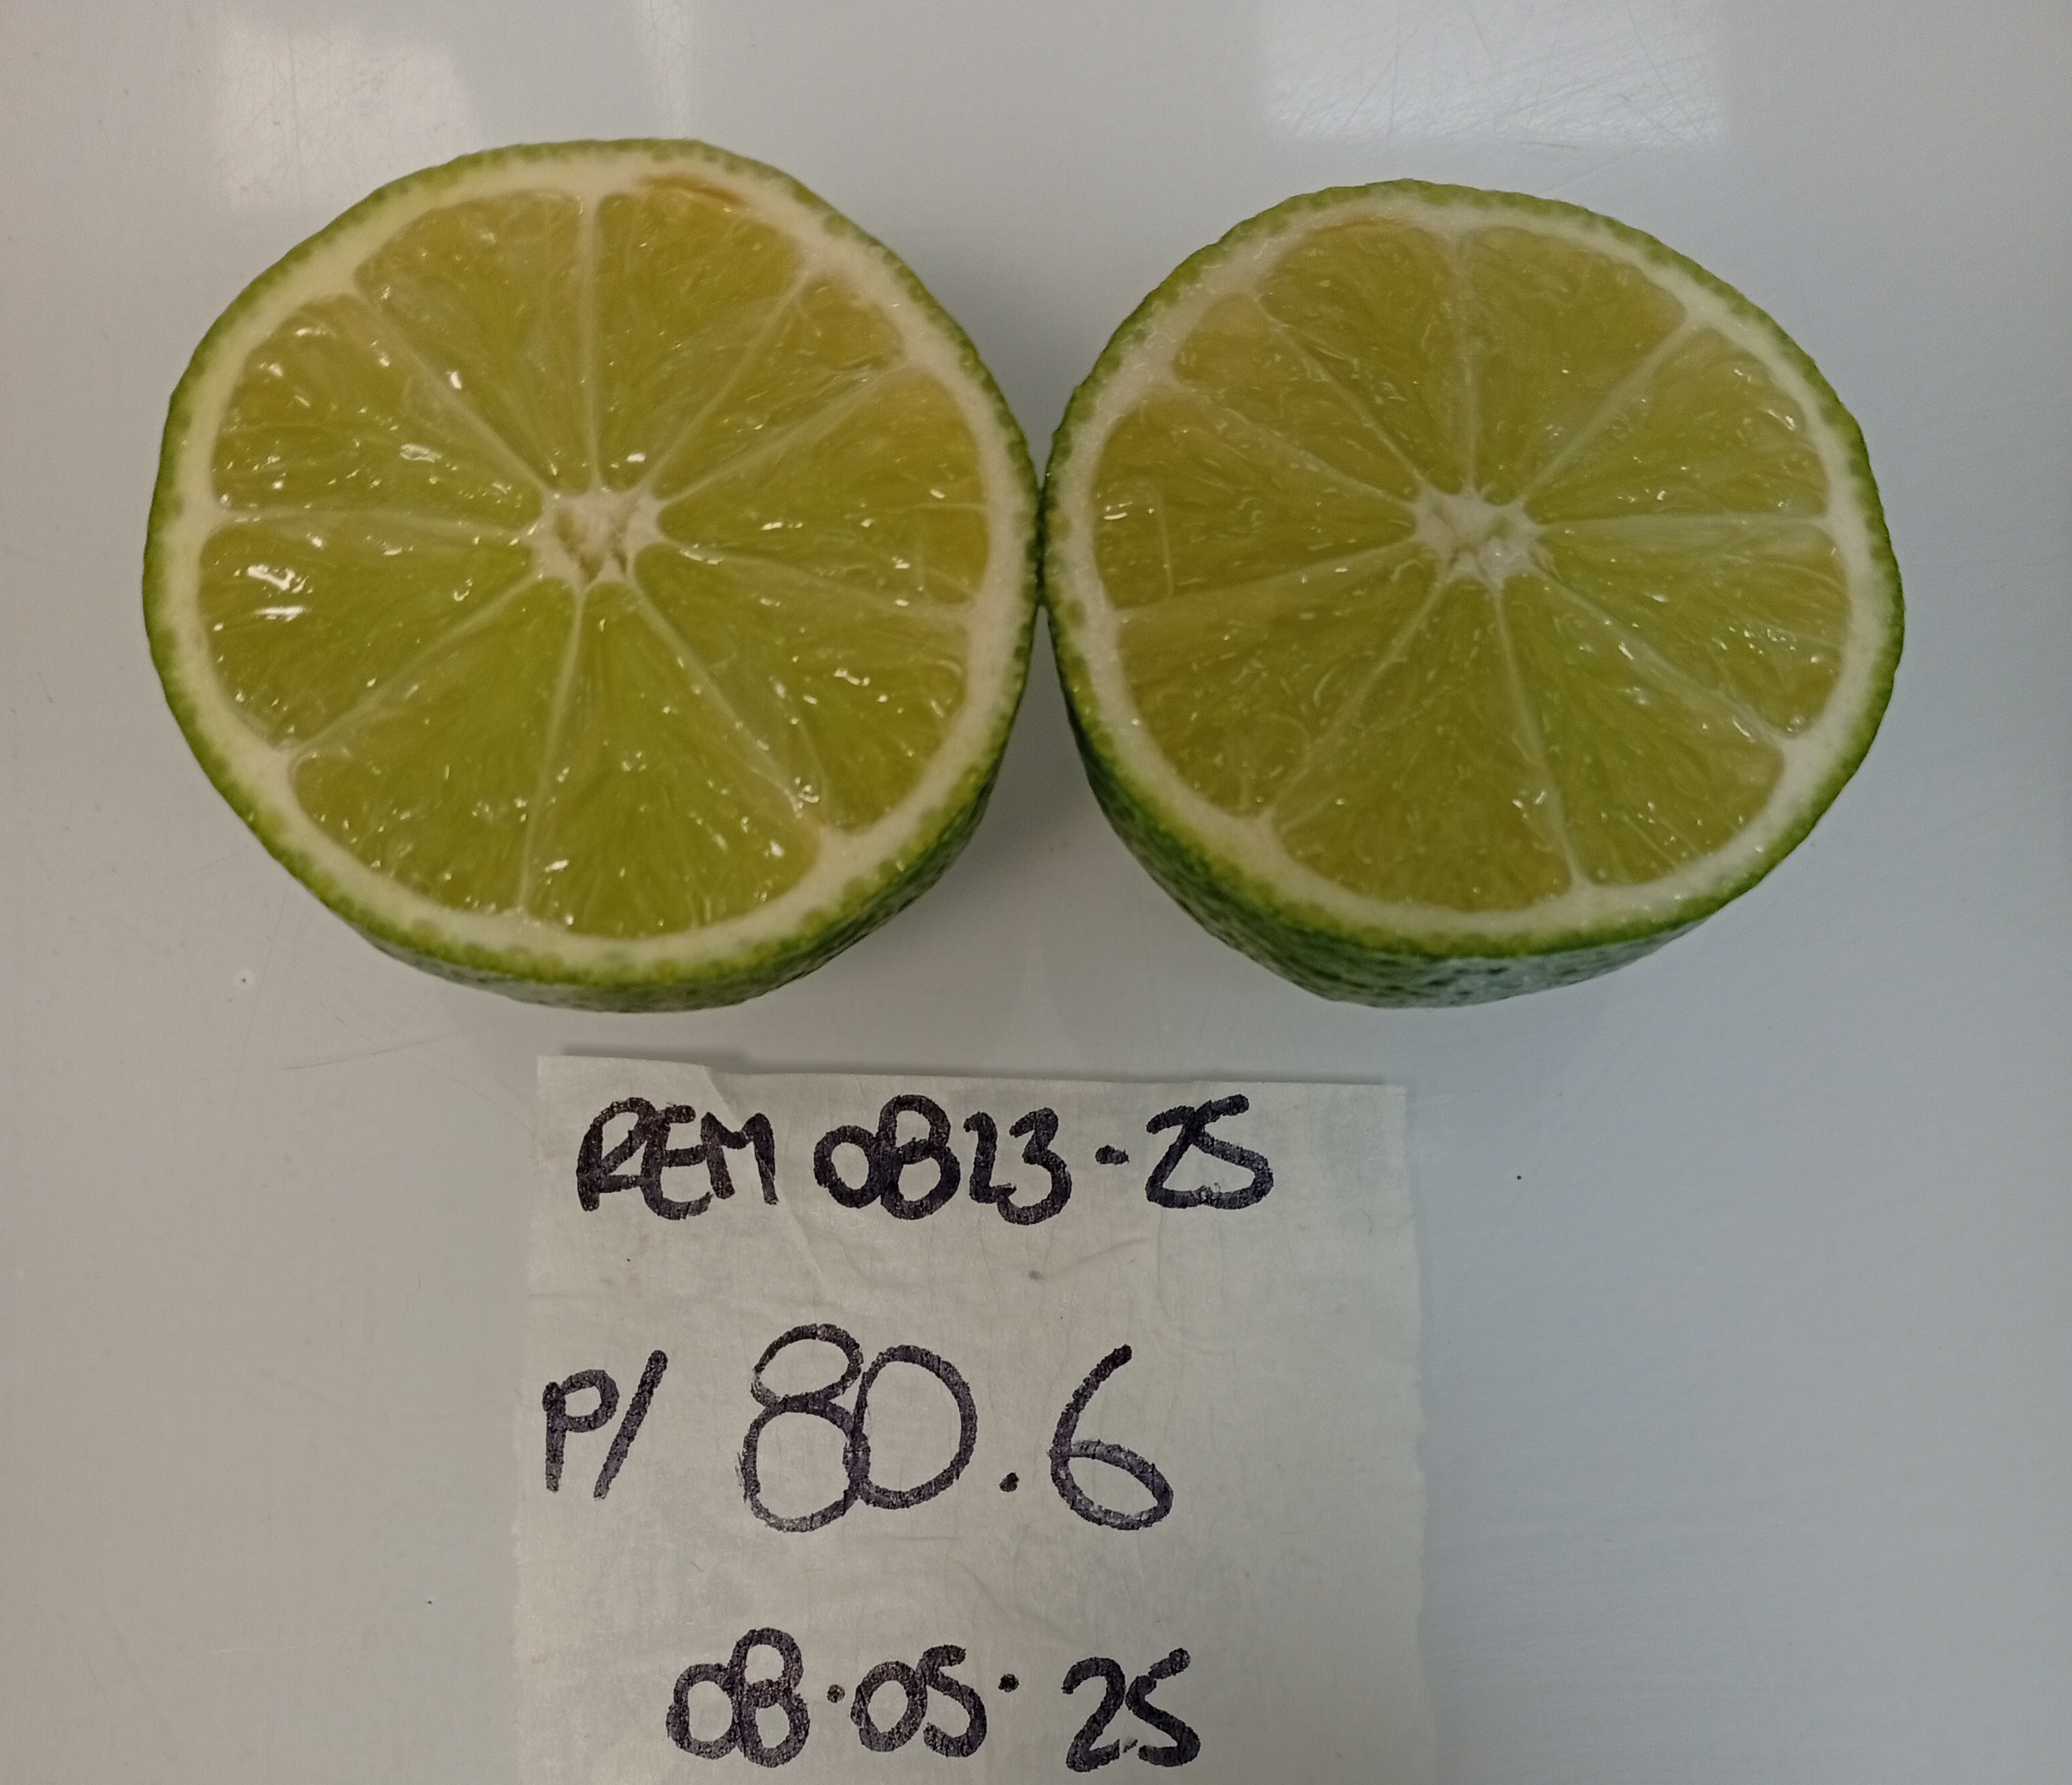 REM 0823-25
P/ 80.6
08.05.25